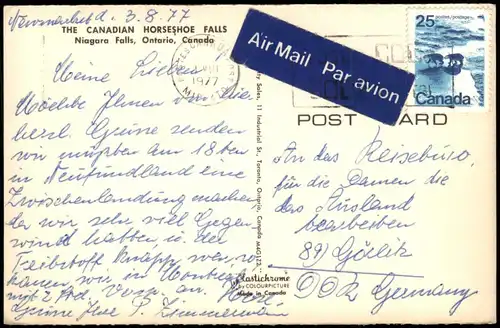 3.8.77
THE CANADIAN HORSESHOE FALLS
Niagara Falls, Ontario, Canada
Meine Lieben
Möchte Ihnen von hier
herzl. Grüße senden
wir mußten am 18ten
in Neufundland eine
Zwischenlandung machen
da wir sehr viel Gegen
wind hatten u. der
Treibstoff knapp war, so
kamen wir in Montreal
mit 2 Std. Versp. an.
Grüße Ihre P. Zimmermann
1977
Air Mail Par avion
25
postage
Canada
POST CARD
An das Reisebüro
für die Damen die
das Ausland
bearbeiten
89) Görlitz
DDR Germany
Plastichrome
by COLOURPICTURE
Made in Canada
Sales, 11 Industrial St., Toronto, Ontario, Canada M4G1Z3